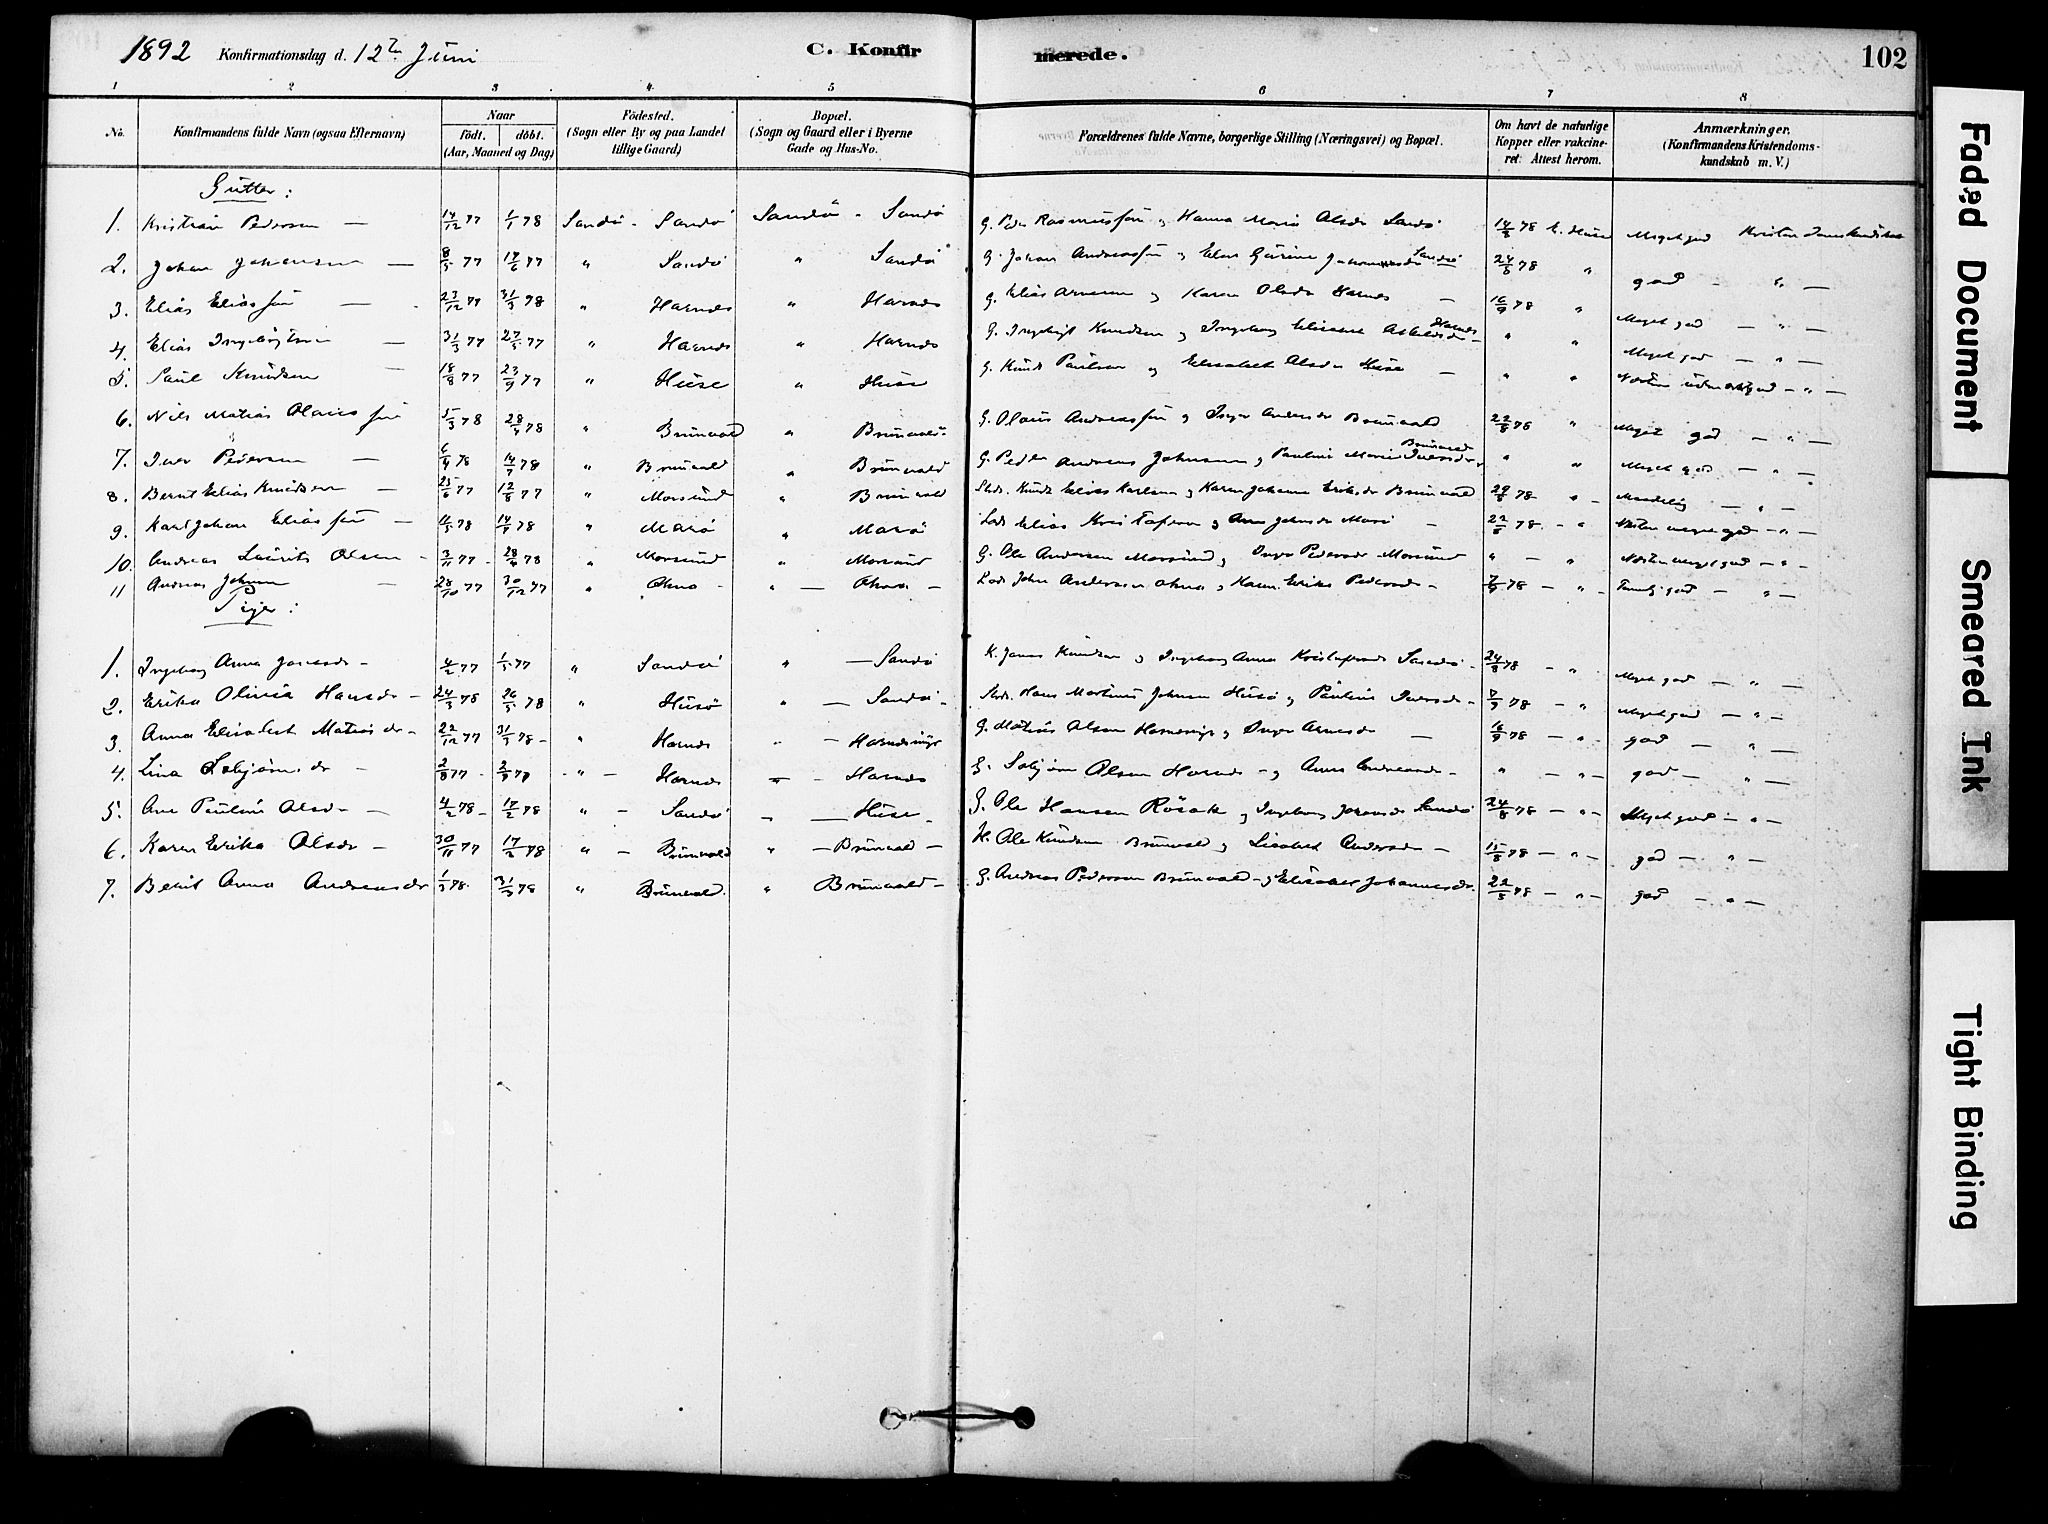 1892 Konfirmationsdag d. 12te Juni
C. Konfir merede.
102
1 2 3 4. 5 6 7 8
No. Konfirmandens fulde Navn (ogsaa Efternavn) Naar födt. döbt. (Aar, Maaned og Dag) Födested. (Sogn eller By og paa Landet tillige Gaard) Bopæl. (Sogn og Gaard eller i Byerne Gade og Hus-No. Forældrenes fulde Navne, borgerlige Stilling (Næringsvei) og Bopæl. Om havt de naturlige Kopper eller vakcineret: Attest herom. Anmærkninger. (Konfirmandens Kristendomskundskab m. V.)
Gutter:
1. Kristian Pedersen — 14/12 77 1/1 78 Sandö - Sandö Sandö - Sandö G. Peder Rasmussön og Hanna Maria Olsdr Sandö 78 E. Huse Meget god Kristendomskundskab
2. Johan Johansen — 8/5 77 17/6 77 " Sandö " Sandö G. Johan Andreassön og Elen Gurine Sandö 24/8 78 " god - " —
3. Elias Eliassön — 23/12 77 31/3 78 " Harnes " Harnes G. Elias Arnesen og Karen Olsdr Harnes — 16/9 78 " Meget god — " —
4. Elias Ingebrigtsen — 31/3 77 27/5 77 " Harnes " Harnes G. Ingebrigt Knudsen og Ingeborg Elisabet Harnes " " Meget god — " —
5. Paul Knudsen — 18/8 77 23/9 77 " Huse " Huse G. Knud Paulsen og Elisabet Olsdr Huse — " " Næsten udmerket god — " —
6. Nils Matias Olaussön 5/3 78 28/4 78 " Brunvold " Brunvold G. Olaus Andreassön og Inger Andersdr Brunvold 22/8 78 " Meget god — " —
7. Iver Pedersen — 6/4 78 14/7 78 " Brunvold " Brunvold G. Peder Andreas Johnsen og Pauline Marie Iversdr Brunvold " " Meget god — " —
8. Bernt Elias Knudsen — 25/6 77 12/8 77 " Morsund " Brunvold Knud Elias Karlsen og Karen Johanna Eriksdr Brunvold 78 " — Maadelig — " —
9. Karl Johan Eliassön — 11/5 78 14/7 78 " Marö " Marö Elias Kristofersen og Ane Johnsdr Marö — 22/8 78 - " Næsten meget god — " —
10. Andreas Laurits Olsen — 3/11 77 28/4 78 " Morsund " Morsund G. Ole Andersen Morsund og Inger Pedersdr Morsund " — " Næsten meget god — " —
11 Andreas Johnsen — 28/10 77 30/12 77 " Ohna — " — Ohna — John Andersen Ohna og Karen Erika Pedersdr — 7/9 78 — " — Temmelig god — " —
Piger:
1. Ingeborg Anna Jonesdr — 4/2 77 1/5 77 " Sandö " — Sandö K. Jonas Knudsen og Ingeborg Anna Kristofersdr Sandö — 24/8 78 — " Meget god — " —
2. Erika Olivia Hansdr — 24/3 78 26/5 78 " Husö " — Sandö - Hans Martinus Johnsen Husö og Pauline Iversdr — 78 — " Meget god — " —
3. Anna Elisabet Matiasdr — 22/12 77 31/3 78 — " Harnes " — Harnesmyr G. Matias Olsen Harnesmyr og Inger Arnesdr — 16/9 78 — " — god — " —
4. Lina Esbjörnsdr — 2/8 77 - — " — Harnes — - Harnes G. Esbjörn Olsen Harnes — og Anne Andreasdr — " — " — god — " —
5. Ane Pauline Olsdr — 4/2 78 — 17/2 78 " — Sandö " — Huse — G. Ole Hansen Rösok og Ingeborg Jonasdr Sandö 24/8 78 — " — Meget god — " —
6. Karen Erika Olsdr — 30/11 77 17/2 78 " — Brunvold " — Brunvold — H. Ole Knudsen Brunvold og Lisabet Andersdr — 15/8 78 — " — god — " —
7. Berit Anna Andreasdr 1/3 78. 31/3 78 " Brunvold. " Brunvold — G. Andreas Pedersen Brunvold — og Elisabet Johannesdr. 22/8 78 — " — god — " —
Faded Document
Smeared Ink
Tight Binding